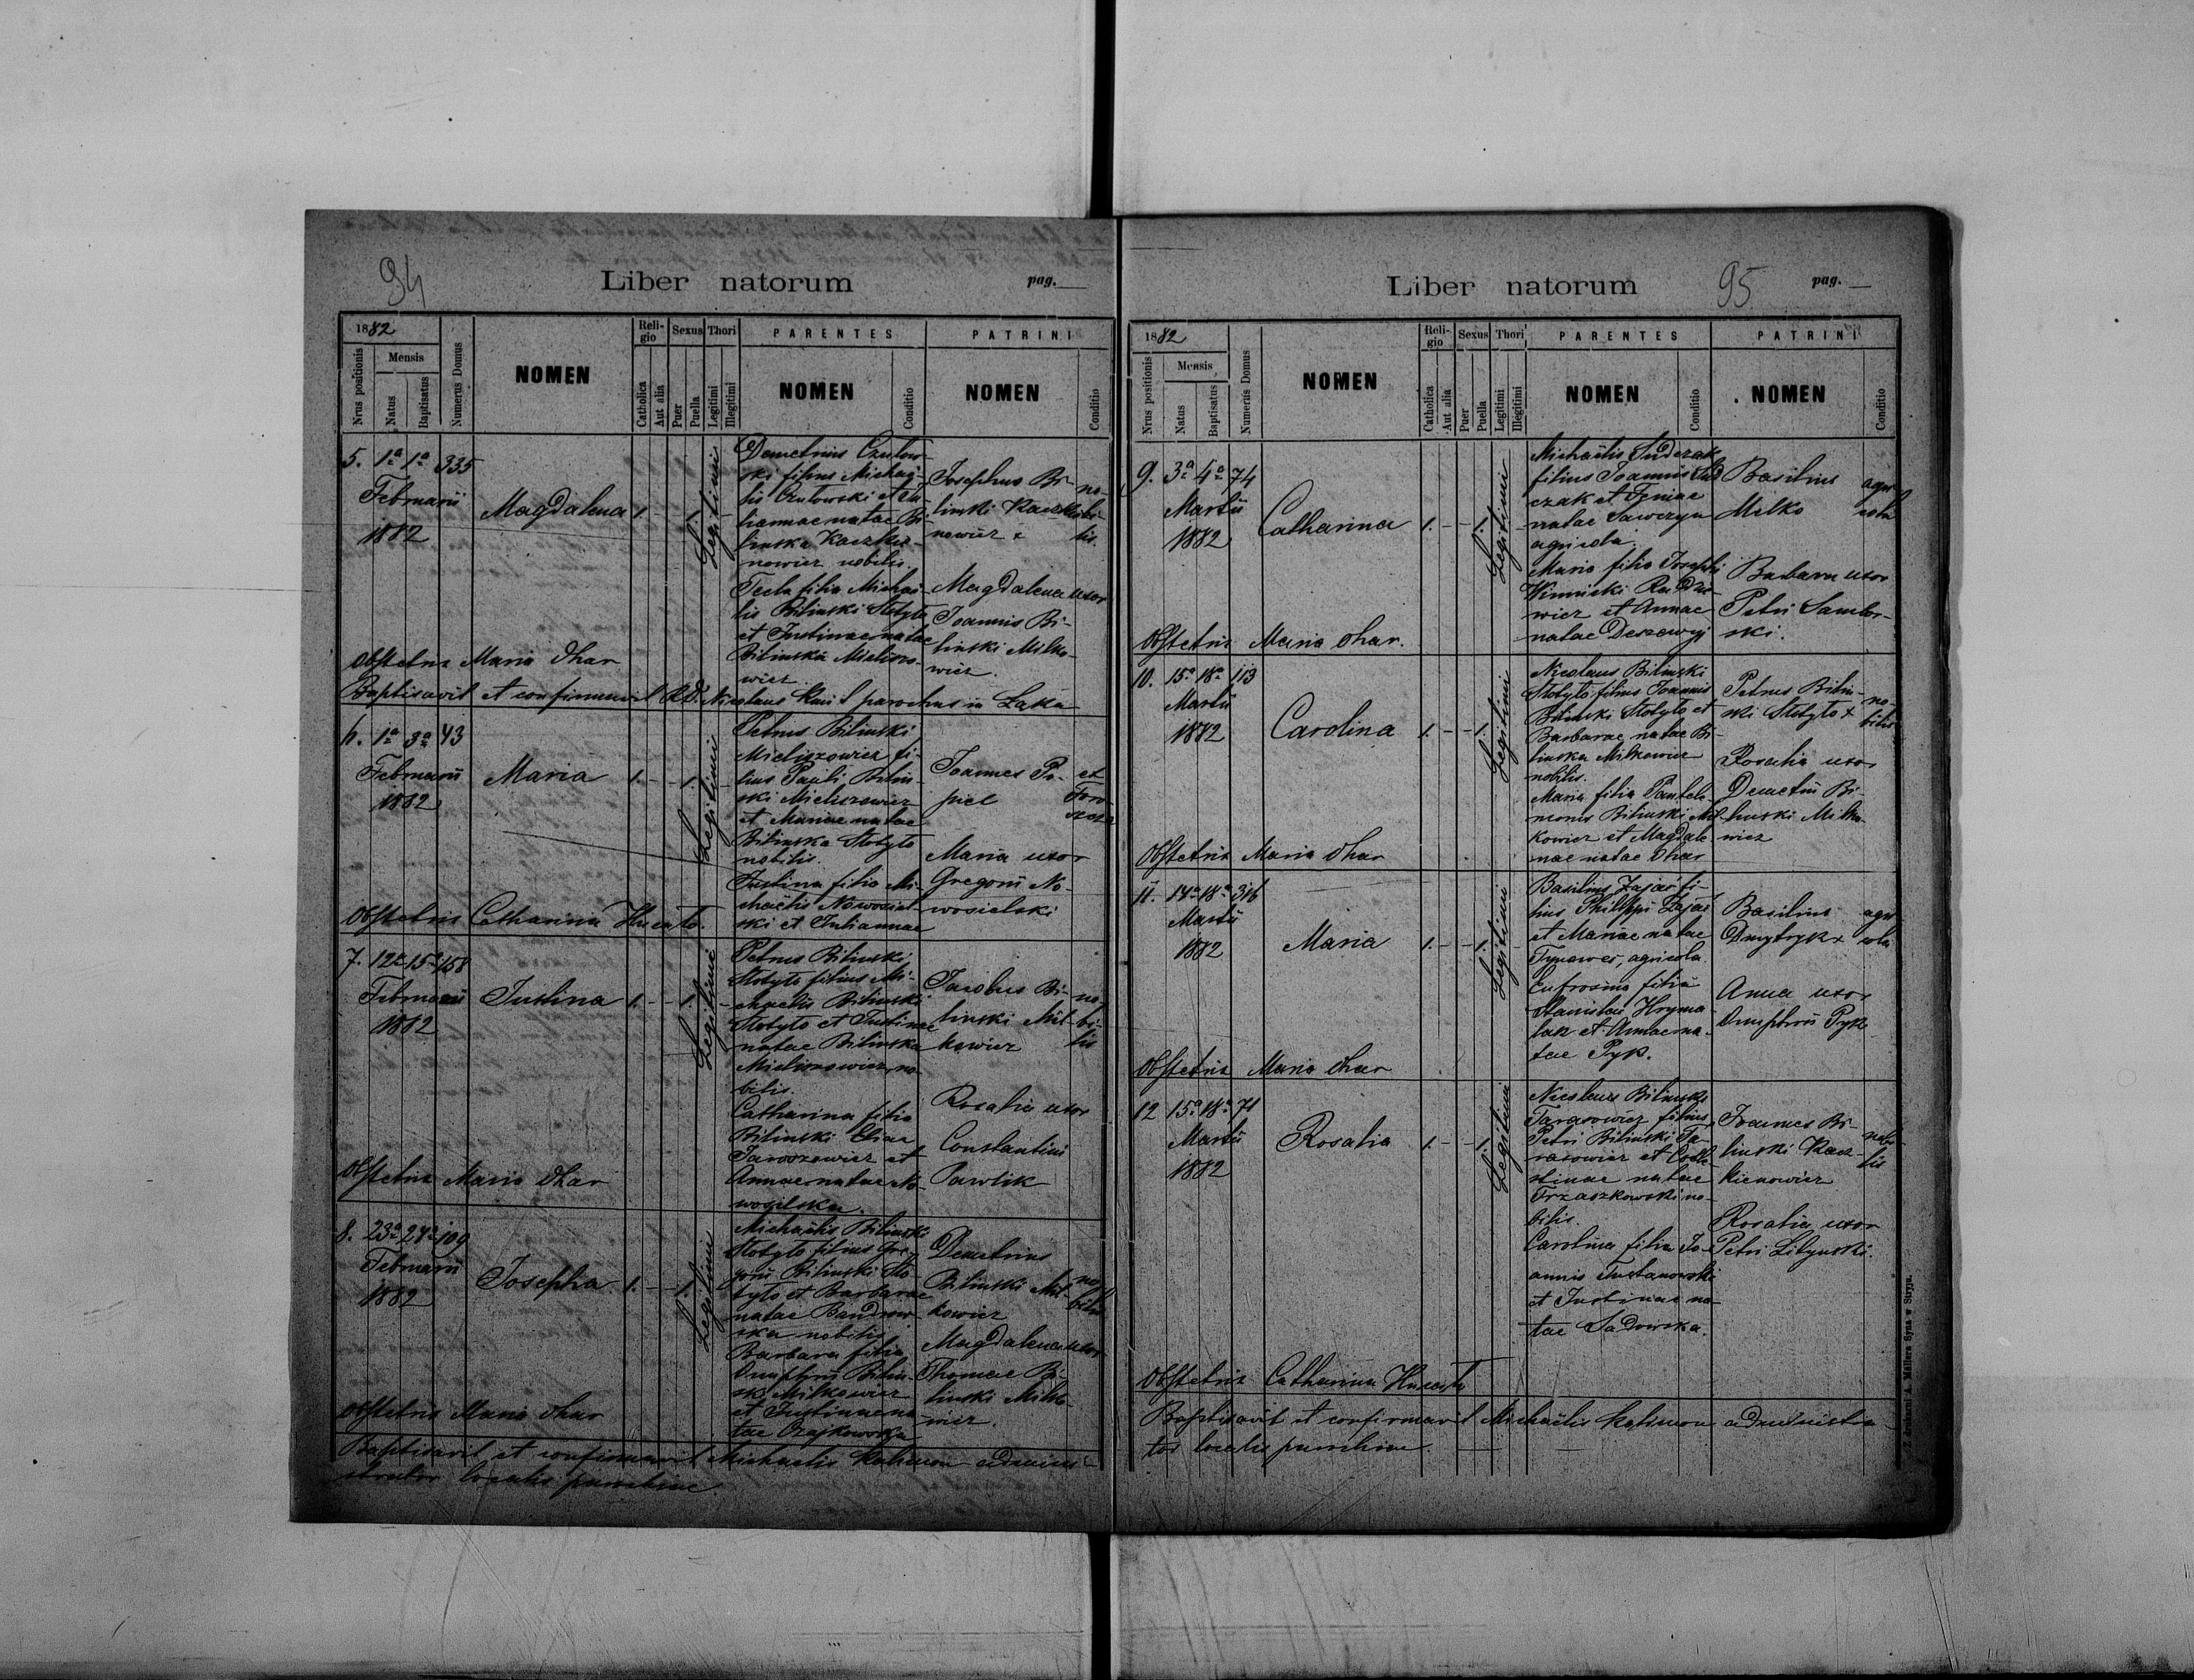 94
Liber natorum pag.
1882
Nrus positionis
Mensis
Natus
Baptisatus
Numerus Domus
NOMEN
Religio
Catholica
Aut alia
Sexus
Puer
Puella
Thori
Legitimi
Illegitimi
PARENTES
NOMEN
Conditio
PATRINI
NOMEN
Conditio
5. 1a 1a 335
Februarii
1882
Magdalena
1. - - 1.
Legitimi
Demetrius Czulow-
ski filius Michaë-
lis Czulowski et Ju-
liannae natae Bi-
linska Kaczke-
nowicz nobilis.
Tecla filia Michaë-
lis Bilinski Stotyto
et Justinae natae
Bilinska Mieliszo-
wicz.
Josephus Bi-
linski Kaczke-
nowicz x
nobi-
lis.
Magdalena uxor
Joannis Bi-
linski Milko-
wicz.
Obstetrix Maria Dhar
Baptisavit et confirmavit RD. Nicolaus Kmit parochus in Łąka
6. 1a 3a 43
Februarii
1882
Maria
1. - - 1.
Legitimi
Petrus Bilinski
Mieliszowicz fi-
lius Pauli Bilin-
ski Mieliszowicz
et Mariae natae
Bilinska Stotyto
nobilis.
Justina filia Mi-
chaëlis Nowosiel-
ski et Juliannae
Joannes Po-
piel
ex
Maria uxor
Gregorii No-
wosielski
Obstetrix Catharina
7. 12a 15a 158
Februarii
1882
Justina
1. - - 1.
Legitimi
Petrus Bilinski
Stotyto filius Mi-
chaëlis Bilinski
Stotyto et Justinae
natae Bilinska
Mieliszowicz, no-
bilis.
Catharina filia
Bilinski Eliae
Jaroszewicz et
Annae natae No-
wosilska.
Jacobus Bi-
linski Mil-
kowicz
no-
bi-
lis
Rosalia uxor
Constantini
Pawlik
Obstetrix Maria Dhar
8. 23a 24a 109
Februarii
1882
Josepha
1. - - 1.
Legitimi
Michaëlis Bilinski
Stotyto filius Gre-
gorii Bilinski Sto-
tyto et Barbarae
natae Bandrow-
ska nobilis
Barbara filia
Onuphrii Bilin-
ski Milkowicz
et Justinae na-
tae Czajkowska
Demetrius
Bilinski Mil-
kowicz
no-
bilis
Magdalena uxor
Thomae Bi-
linski Milko-
wicz.
Obstetrix Maria Dhar
Baptisavit et confirmavit Michaëlis admini-
strator localis parochiae
Liber natorum 95 pag.
1882
Nrus positionis
Mensis
Natus
Baptisatus
Numerus Domus
NOMEN
Religio
Catholica
Aut alia
Sexus
Puer
Puella
Thori
Legitimi
Illegitimi
PARENTES
NOMEN
Conditio
PATRINI
NOMEN
Conditio
9. 3a 4a 74
Martii
1882
Catharina
1. - - 1.
Legitimi
Michaëlis Sudczak
filius Joannis Sud
czak et Feniae
natae Sawczyn
agricola.
Maria filia Josephi
Winnicki Radzie-
wicz et Annae
natae
Basilius
Milko
agri
cola
Barbara uxor
Petri Sambor-
ski.
Obstetrix Maria Dhar.
10. 15a 18a 113
Martii
1882
Carolina
1. - - 1.
Legitimi
Nicolaus Bilinski
Stotyto filius Joannis
Bilinski Stotyto et
Barbarae natae Bi-
linska Milkowicz
nobilis.
Maria filia Pantele-
monis Bilinski Mil-
kowicz et Magdale-
nae natae Dhar
Petrus Bilin-
ski Stotyto x
no-
bilis
Rosalia uxor
Demetrii Bi-
linski Milko-
wicz
Obstetrix Maria Dhar
11. 17a 18a 316
Martii
1882
Maria
1. - - 1.
Legitimi
Basilius Zając fi-
lius Philippi Zając
et Mariae natae
agricola.
Eufrosina filia
Stanislai Hryma-
lak et Annae na-
tae Pyk.
Basilius
Dmytryk x
agri
cola
Anna uxor
Onuphrii Pyk
Obstetrix Maria Dhar
12 15a 18a 71
Martii
1882
Rosalia
1. - - 1.
Legitimi
Nicolaus Bilinski
Tarasowicz filius
Petri Bilinski Ta-
rasowicz et Coele-
stinae natae
Trzaszkowski no-
bilis.
Carolina filia Jo-
annis Tustanowski
et Justinae na-
tae Sadowska.
Joannes Bi-
linski Kacz-
kienowicz
nobi-
lis
Rosalia uxor
Petri Litynski.
Obstetrix Catharina
Baptisavit et confirmavit Michaëlis administra-
tor localis parochiae.
Z drukarni A. Müllera Syna w Stryju.